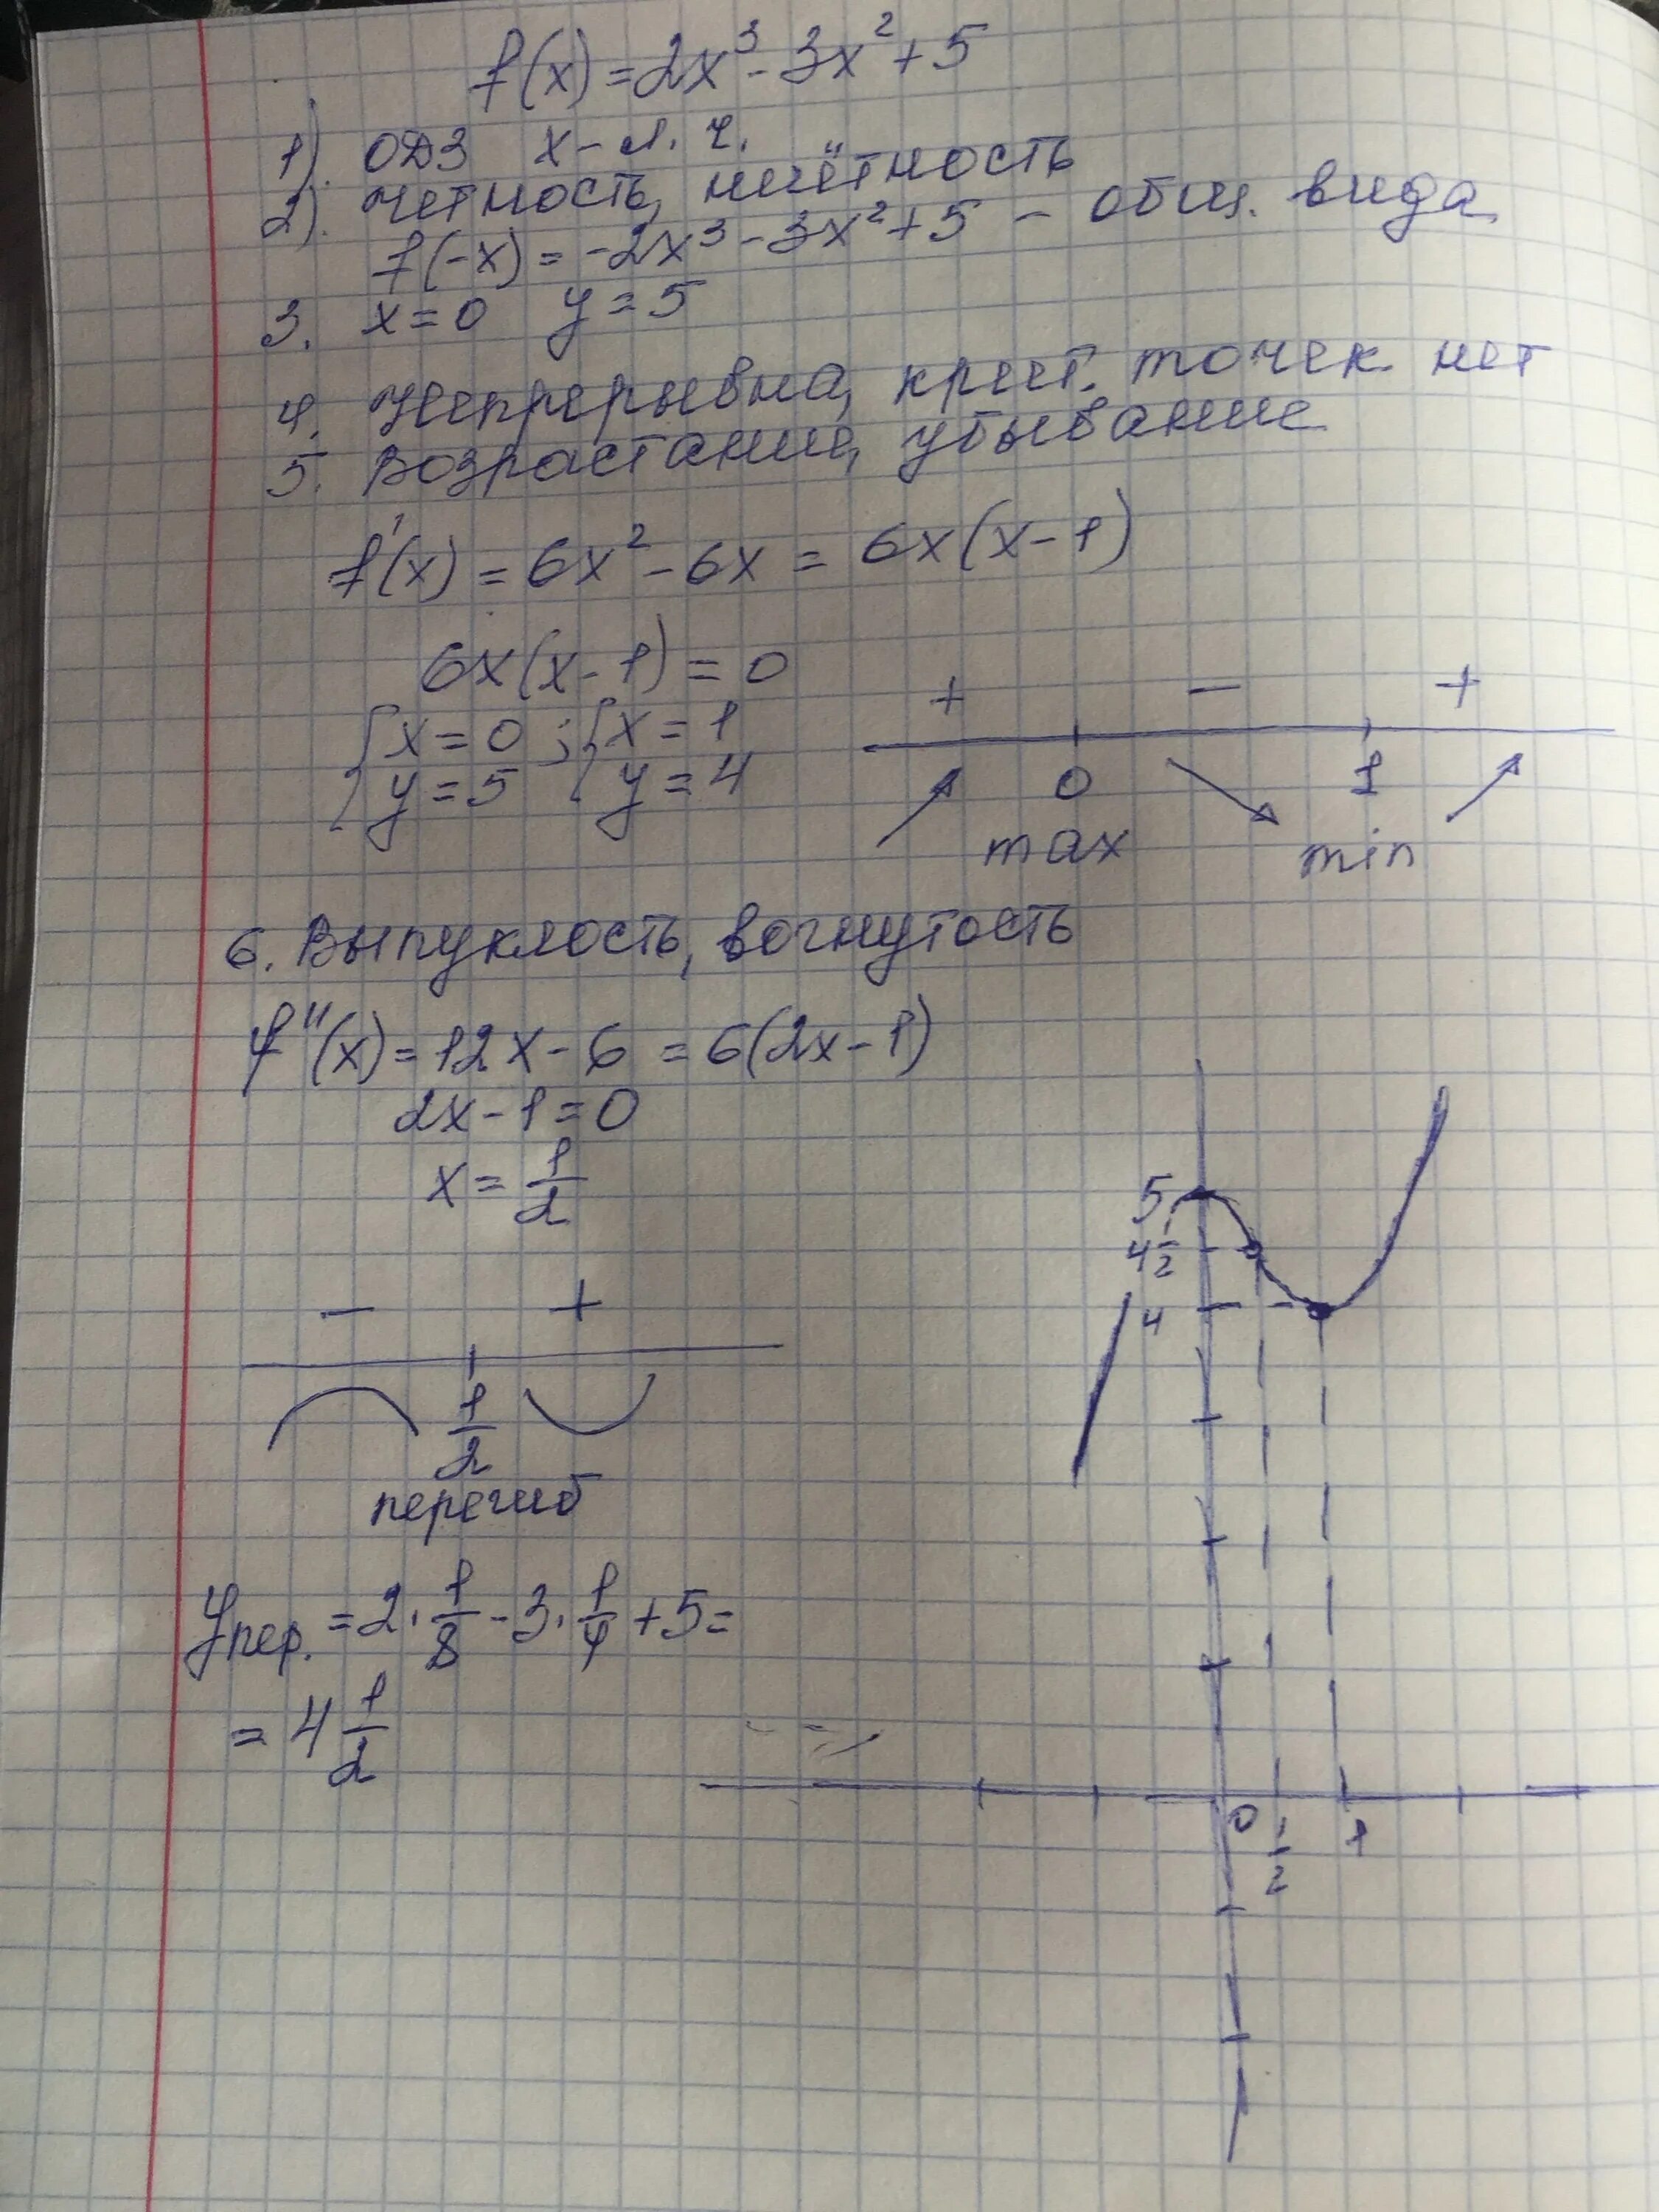 f(x) = 2x³ - 3x² + 5
1). ОДЗ x - л. ч.
2). Четность, нечётность
f(-x) = -2x³ - 3x² + 5 - общ. вида
3. x = 0 y = 5
4. Непрерывна, крит. точек нет
5. Возрастание, убывание
f'(x) = 6x² - 6x = 6x(x - 1)
6x(x - 1) = 0
{ x = 0 ; { x = 1
{ y = 5 { y = 4
+ - +
0 1
max min
6. Выпуклость, вогнутость
f''(x) = 12x - 6 = 6(2x - 1)
2x - 1 = 0
x = 1/2
- +
1/2
перегиб
yпер. = 2 · 1/8 - 3 · 1/4 + 5 =
= 4 1/2
5
4 1/2
4
0 1/2 1